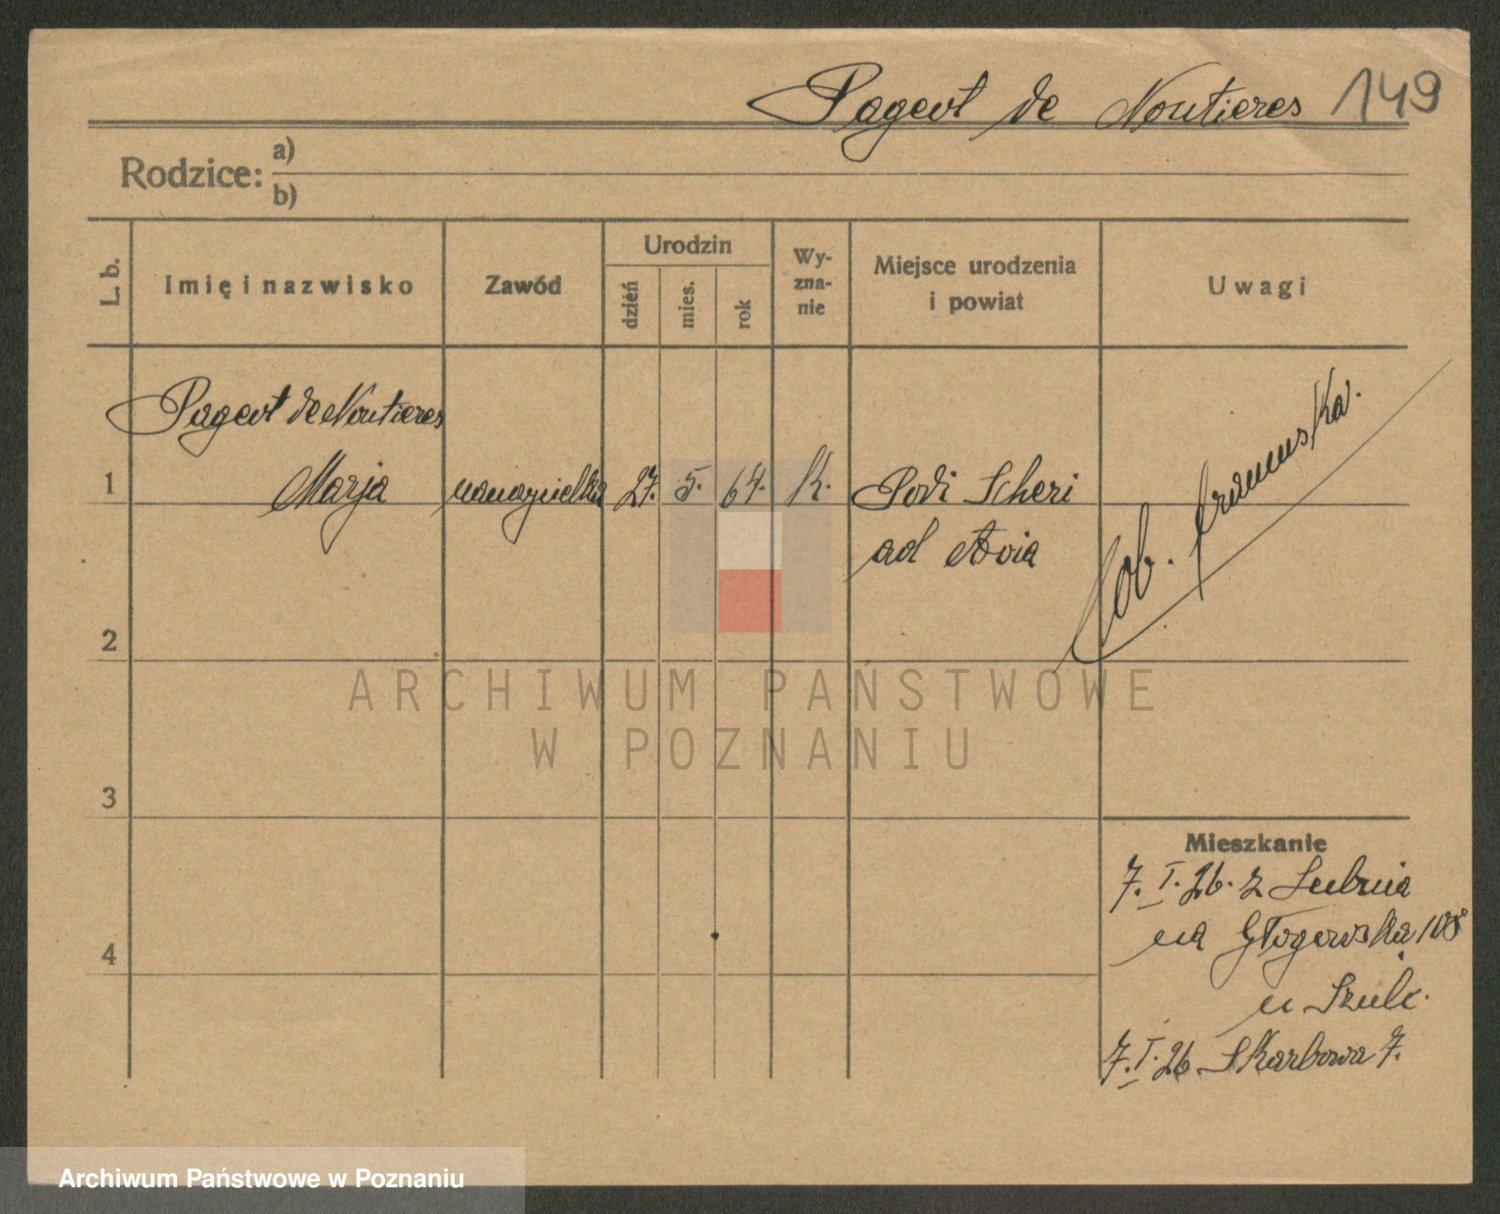 Pageot de Noutieres 149
Rodzice: a)
b)
L. b.
Imię i nazwisko
Zawód
Urodzin
dzień
mies.
rok
Wy-
zna-
nie
Miejsce urodzenia
i powiat
Uwagi
Pageot de Noutieres
1 Marja nauczycielka 27. 5. 64. K. Podi Scheri
ad Avia
Ob. francuska.
2
3
4
Mieszkanie
7. I. 26. z Lubnia
na Głogowska 108
u Szulc.
7. I. 26 Skarbowa 7.
ARCHIWUM PAŃSTWOWE
W POZNANIU
Archiwum Państwowe w Poznaniu